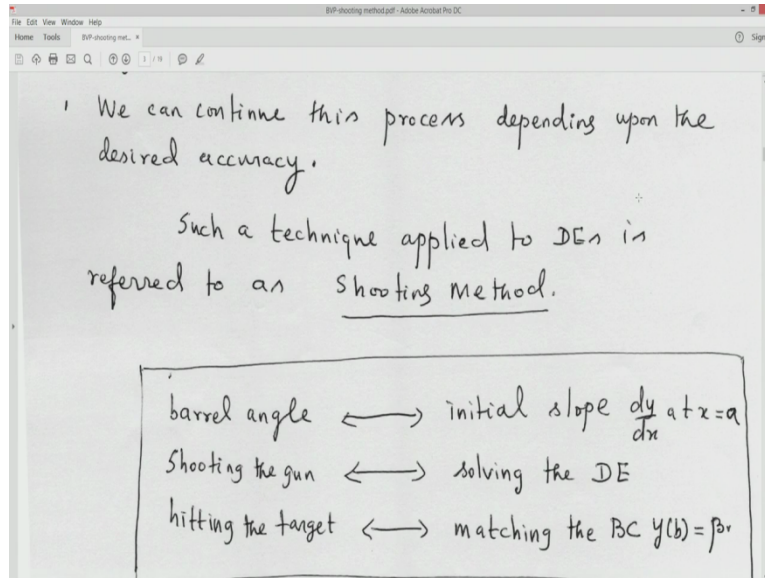 BVP-shooting method.pdf - Adobe Acrobat Pro DC
File Edit View Window Help
Home Tools BVP-shooting met... × Sign
1 / 19
We can continue this process depending upon the
desired accuracy.
Such a technique applied to DEs is
referred to as Shooting Method.
barrel angle ⟷ initial slope dy/dx at x=a
Shooting the gun ⟷ solving the DE
hitting the target ⟷ matching the BC y(b) = β